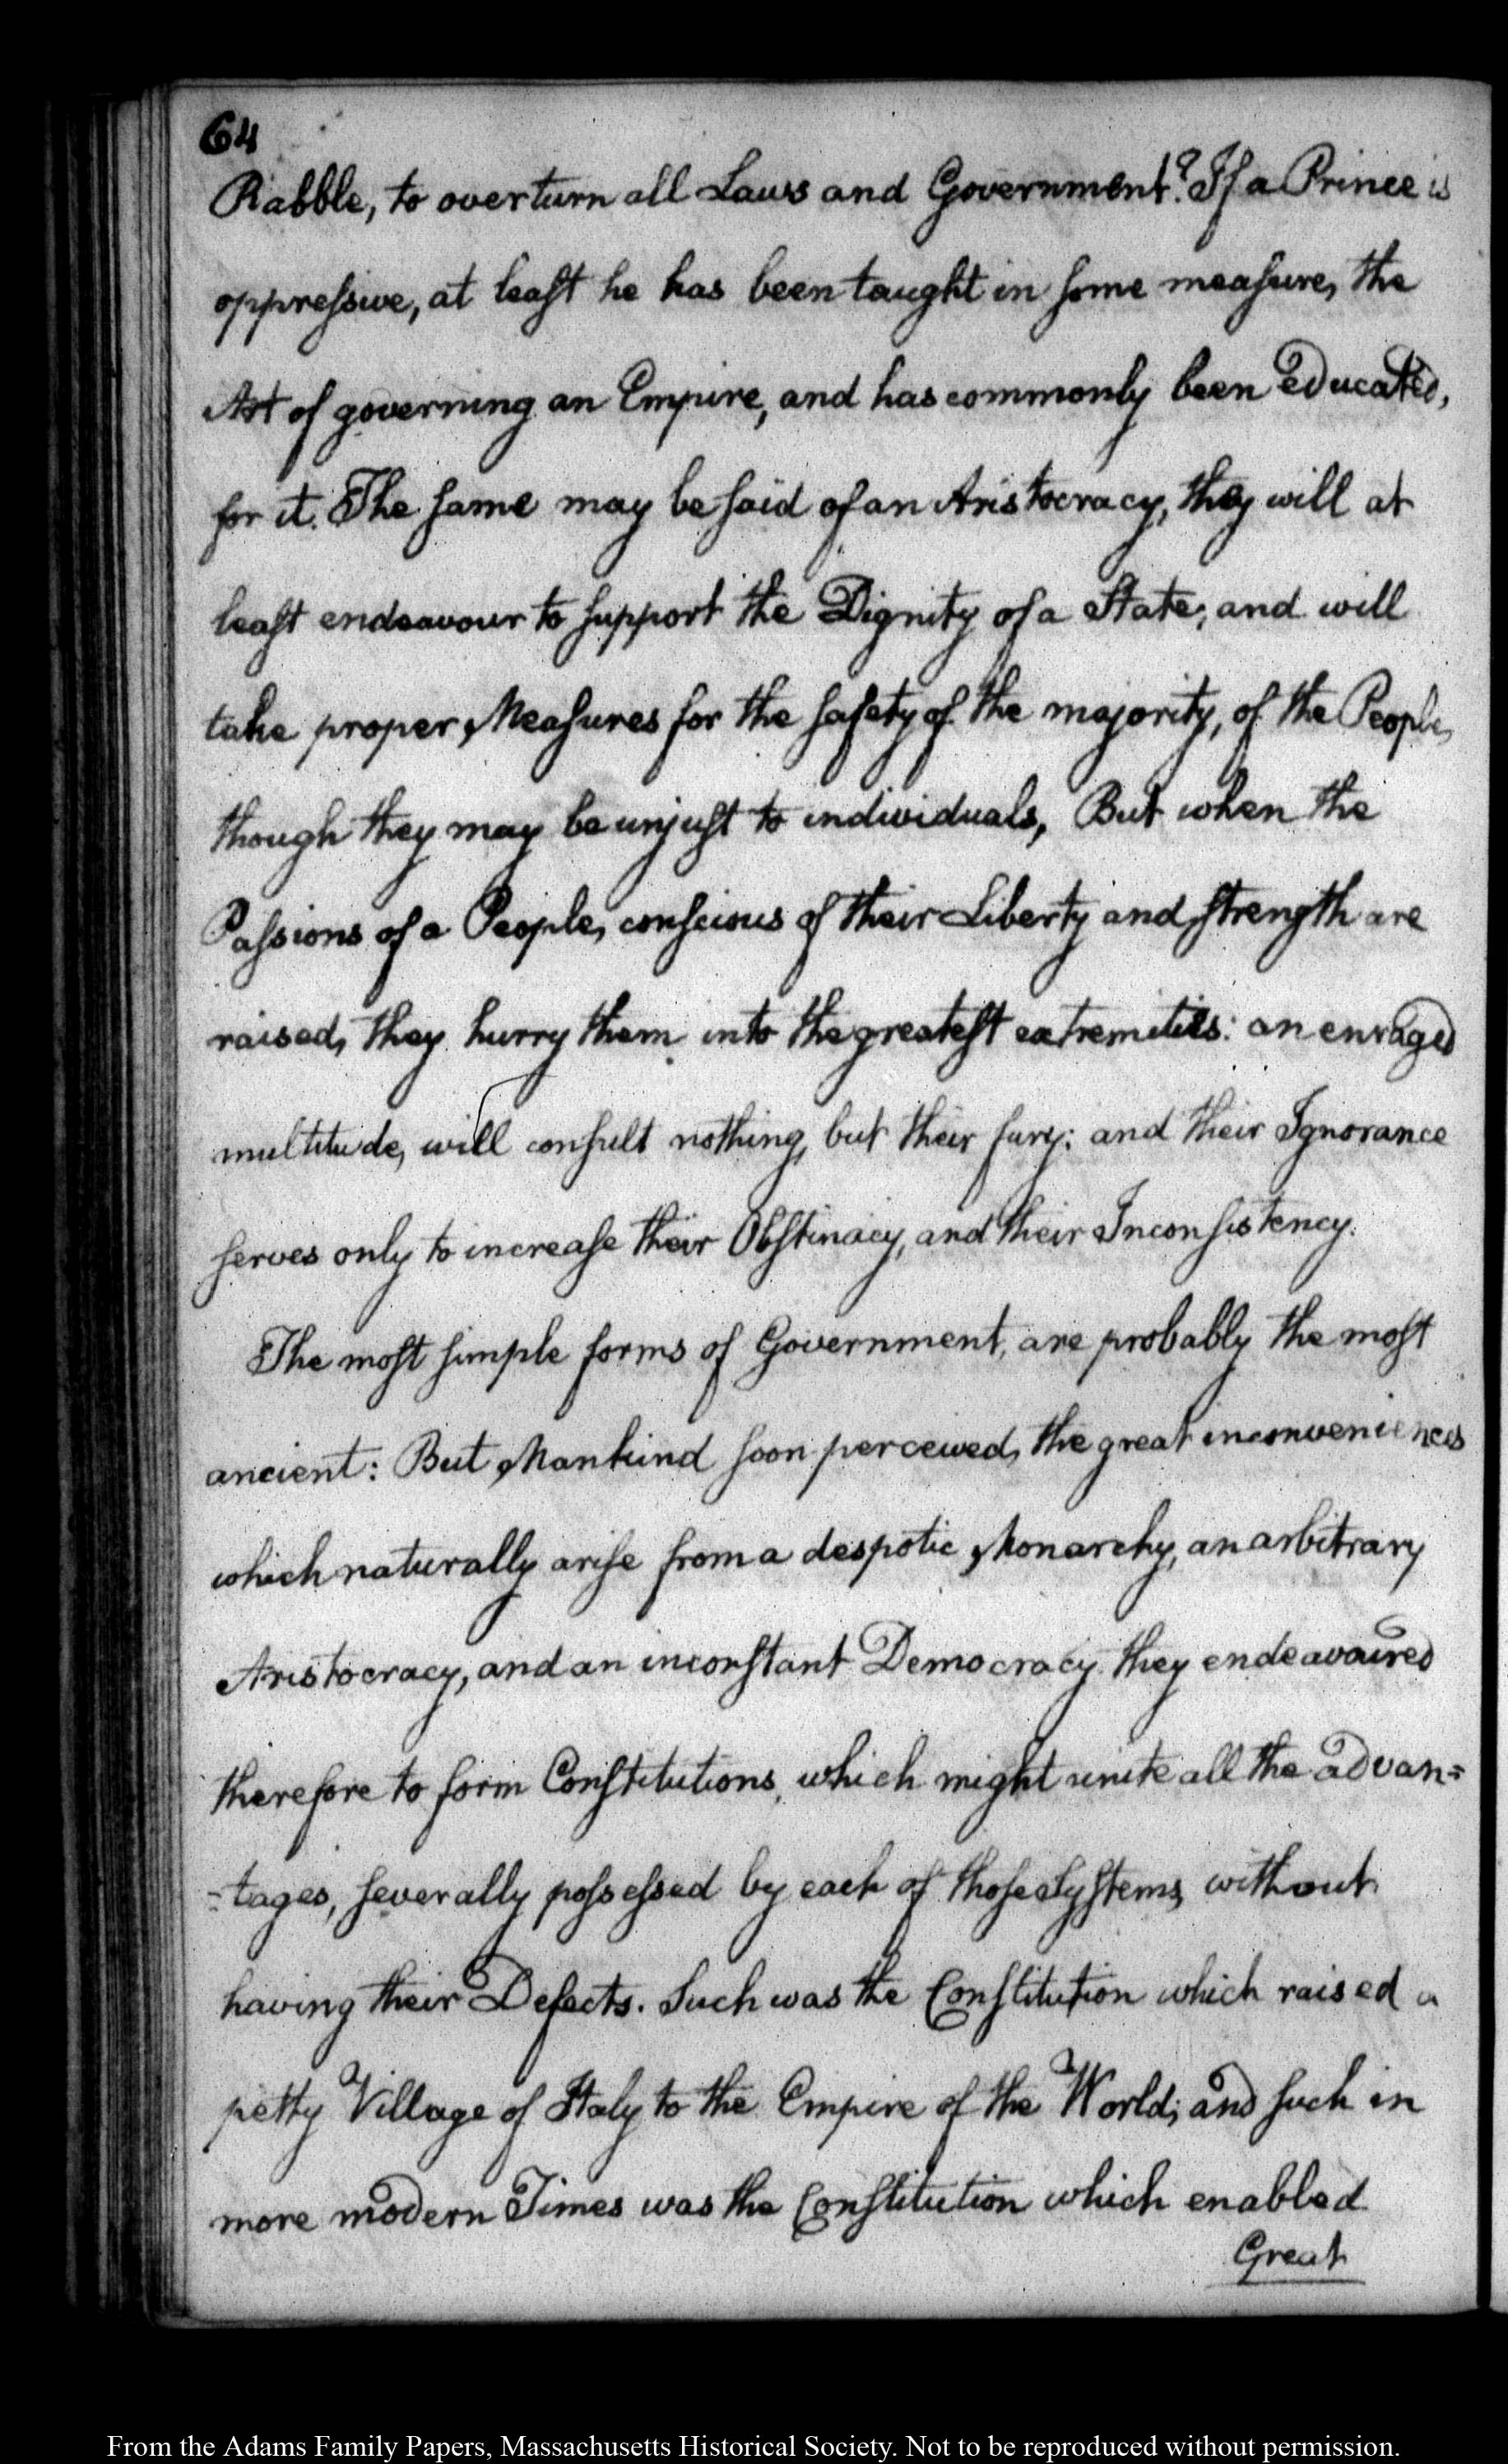 64
Rabble, to overturn all Laws and Government? If a Prince is
oppressive, at least he has been taught in some measure, the
Art of governing an Empire, and has commonly been educated,
for it. The same may be said of an Aristocracy, they will at
least endeavour to support the Dignity of a State; and will
take proper Measures for the safety of the majority, of the People,
though they may be unjust to individuals, But when the
Passions of a People, conscious of their Liberty and strength are
raised, they hurry them into the greatest extremities: an enraged
multitude, will consult nothing, but their fury; and their Ignorance
serves only to increase their Obstinacy, and their Inconsistency.
The most simple forms of Government, are probably the most
ancient: But Mankind soon perceived, the great inconveniences
which naturally arise from a despotic Monarchy, an arbitrary
Aristocracy, and an inconstant Democracy. they endeavoured
therefore to form Constitutions, which might unite all the advan=
=tages, severally possessed by each of those Systems, without
having their Defects. Such was the Constitution which raised a
petty Village of Italy to the Empire of the World; and such in
more modern Times was the Constitution which enabled
Great
From the Adams Family Papers, Massachusetts Historical Society. Not to be reproduced without permission.